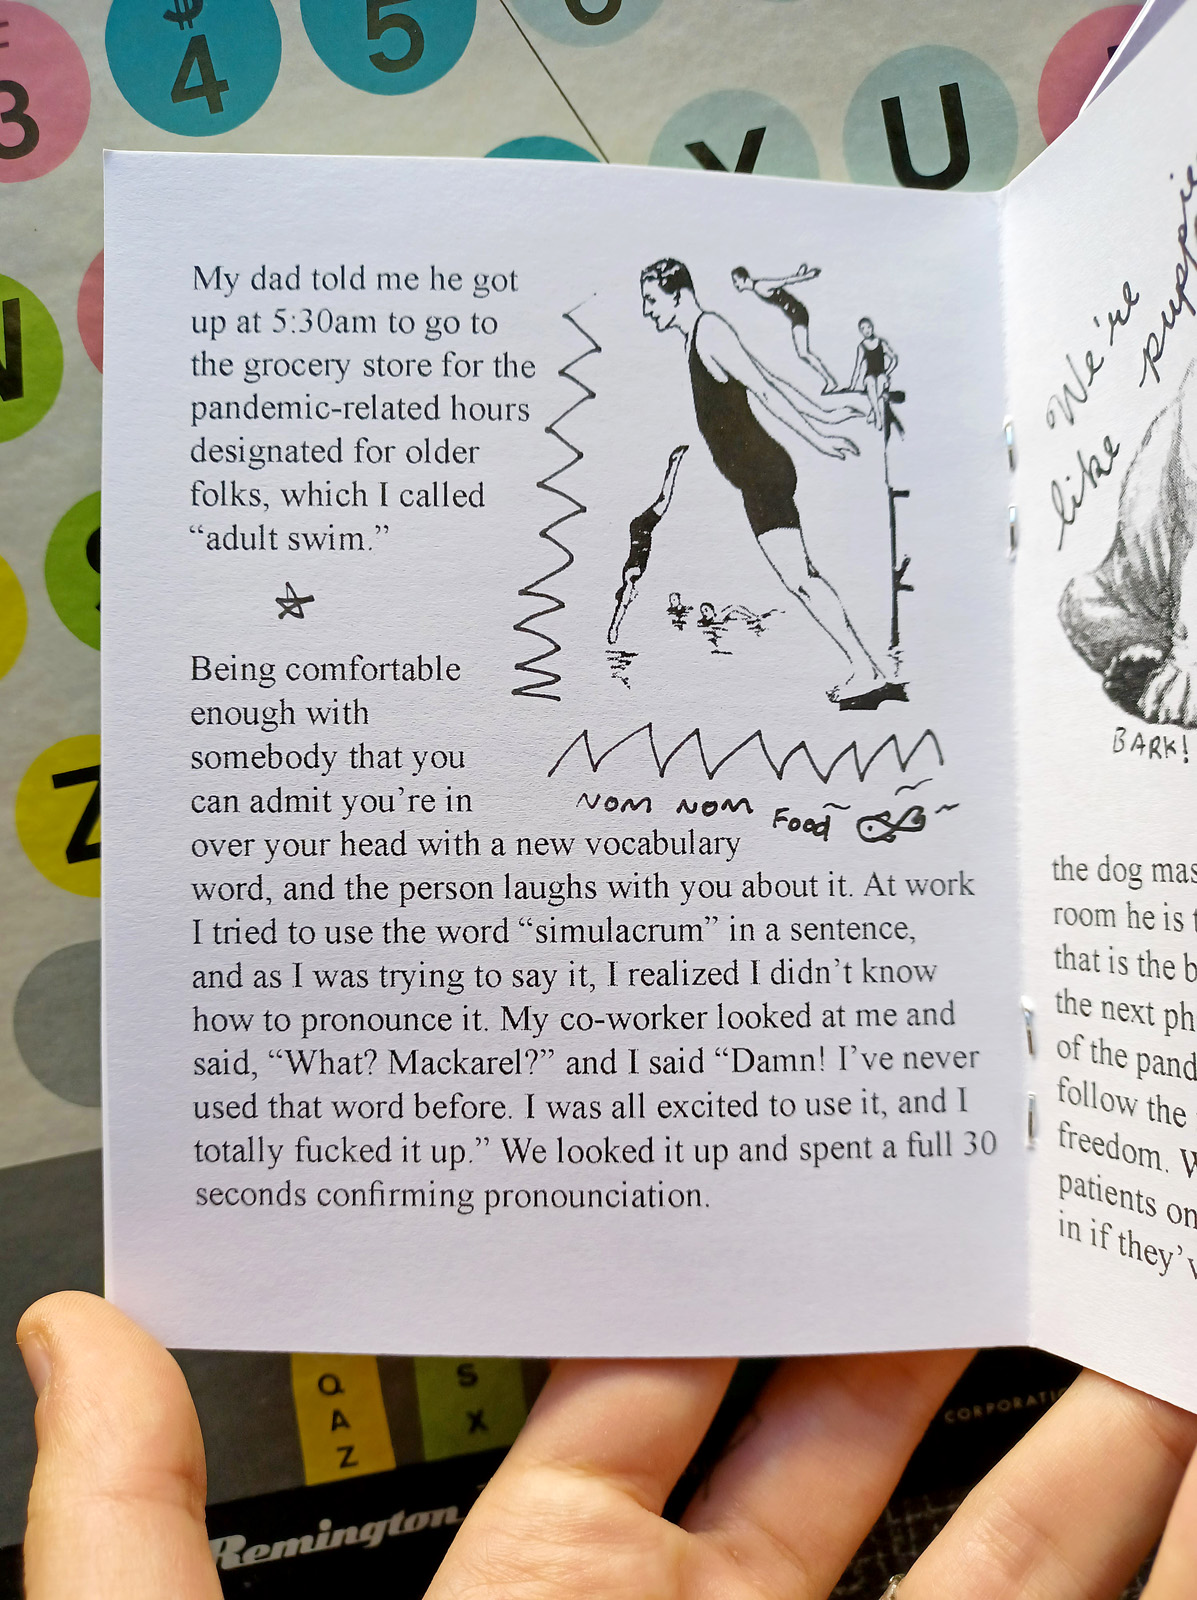 $
3
4
5
6
Y
U
N
Z
My dad told me he got
up at 5:30am to go to
the grocery store for the
pandemic-related hours
designated for older
folks, which I called
“adult swim.”
Being comfortable
enough with
somebody that you
can admit you’re in
over your head with a new vocabulary
word, and the person laughs with you about it. At work
I tried to use the word “simulacrum” in a sentence,
and as I was trying to say it, I realized I didn’t know
how to pronounce it. My co-worker looked at me and
said, “What? Mackarel?” and I said “Damn! I’ve never
used that word before. I was all excited to use it, and I
totally fucked it up.” We looked it up and spent a full 30
seconds confirming pronounciation.
NOM NOM Food
We're
like
BARK!
the dog
room he is
that is the
the next
of the
follow the
freedom.
patients
in if
Q
A
Z
S
X
Remington